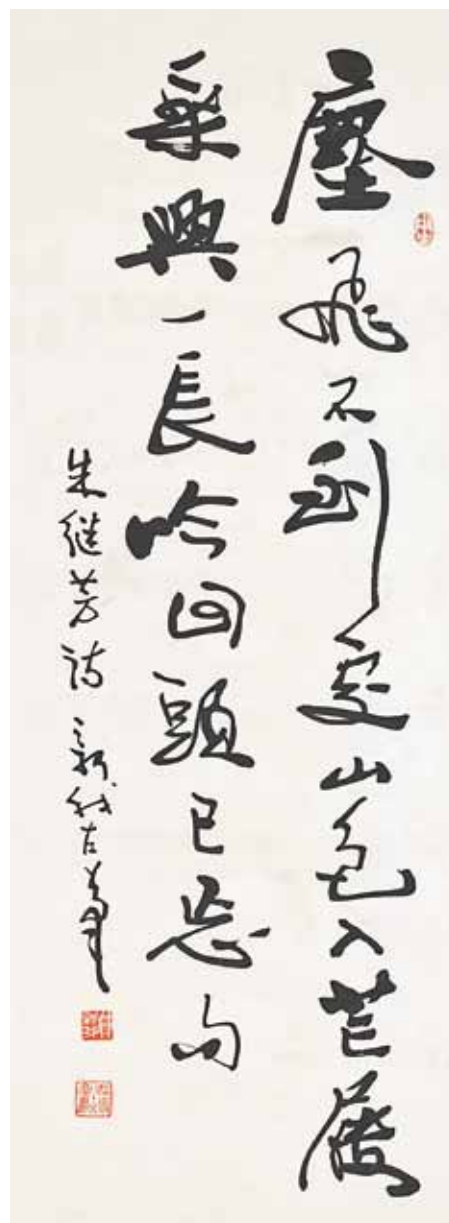 塵飛不到處山色入芒屨
乘興一長吟回頭已忘句
朱继芳詩 新我左筆